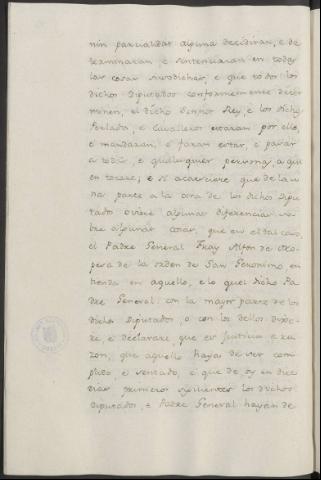 nin parcialidad alguna decidiran, e de
terminaran, e sintenciaran en todas
las cosas susodichas, e que todos los
dichos Diputados conformemente deter
minen, el dicho Señor Rey, e los dichos
Perlados, e Cavalleros estaran por ello,
e mandaran, e faran estar, e pasar
a todas, e qualesquier personas a quien
tocare; e si acaesciere que de la u
na parte a la otra de los dichos Dipu
tados oviere algunas diferencias so
bre algunas cosas, que en el tal caso,
el Padre General Fray Alfon de Oro
pesa de la orden de San Geronimo en
tienda en aquello, e lo quel dicho Pa
dre General con la mayor parte de los
dichos Diputados, o con los dellos
re, e declarare que es Justicia e ra
zon, que aquello haya de ser com
plido, e sentado, e que de oy en diez
dias primeros siguientes los dichos
Diputados, e Padre General hayan de